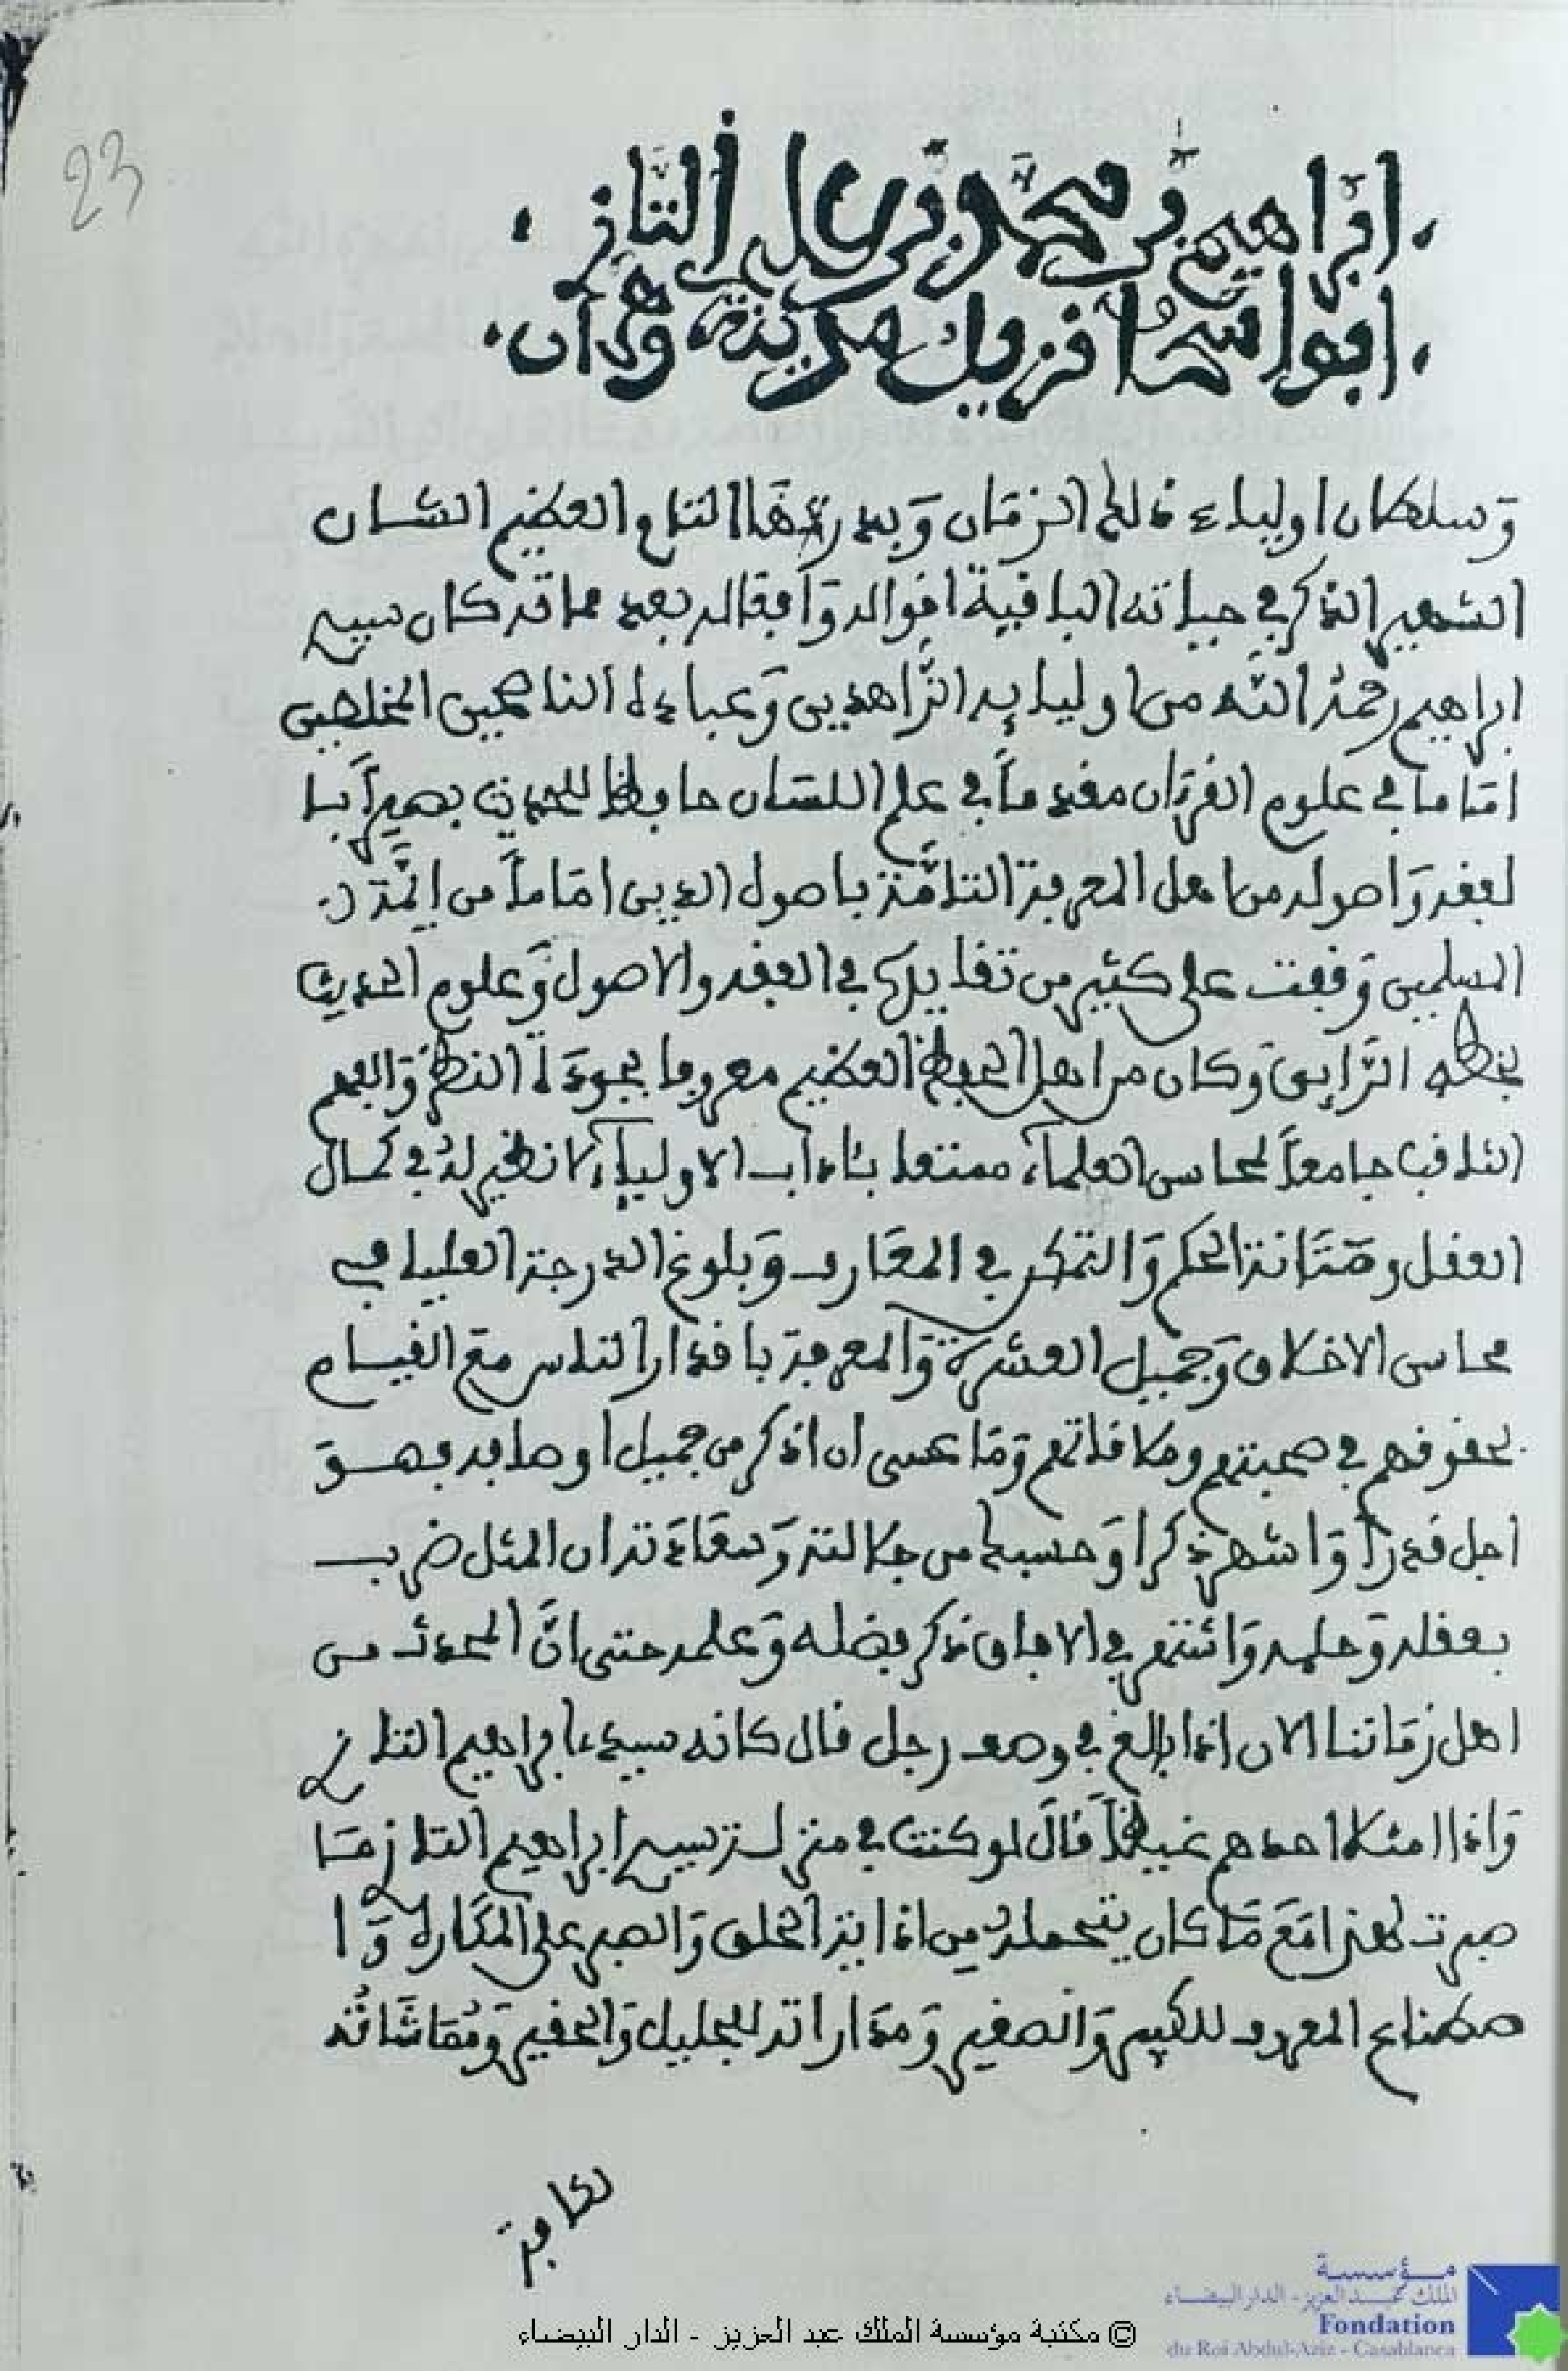 23
ابراهيم بن محمد بن علي التازي
ابو اسحاق نزيل مدينة وهران
وسلطان اولياء ذلك الزمان وبدر هذا التاج العظيم الشان
الشهير الذكر في حياته الباقية اقواله وافعاله بعد مماته قد كان سيدي
ابراهيم رحمه الله من اوليايه الزاهدين وعباده الناصحين المخلصين
اماما في علوم القرءان مقدماً في علم اللسان حافظا للحديث بصيراً با
لفقه واصوله من اهل المعرفة التامة باصول الدين اماماً من ايمة
المسلمين وقفت على كثير من تقاييده في الفقه والاصول وعلوم الحديث
بخطه الرايق وكان من اهل الحفظ العظيم معروفا بجودة النظر والفهم
الثاقب جامعاً لمحاسن العلماء ممتعا بئاداب الاولياء لا نظير له في كمال
العقل ومتانة الحكم والتمكن في المعارف وبلوغ الدرجة العليا في
محاسن الاخلاق وجميل العشرة والمعرفة باقدار الناس مع القيام
بحقوقهم في صحبتهم ومكافاتهم وما عسى ان اذكر من جميل اوصافه فهو
اجل قدراً واشهر ذكرا وحسبك من جلالته وسعادته ان المثل ضرب
بعقله وحلمه وانتشر في الافاق ذكر فضله وعلمه حتى انَّ المحدث من
اهل زماننا الان اذا بالغ في وصف رجل قال كانه سيدي ابراهيم التازي
واذا امتلا احدهم غيظاً قال لو كنت في منزلة سيدي ابراهيم التازي ما
صبرت لهذا مع ما كان يتحمله من اذاية الخلق والصبر على المكاره وا
صطناع المعروف للكبير والصغير ومداراته للجليل والحقير ومقاساته
مؤسسة
الملك عبد العزيز - الدار البيضاء
Fondation
du Roi Abdul-Aziz - Casablanca
© مكتبة مؤسسة الملك عبد العزيز - الدار البيضاء